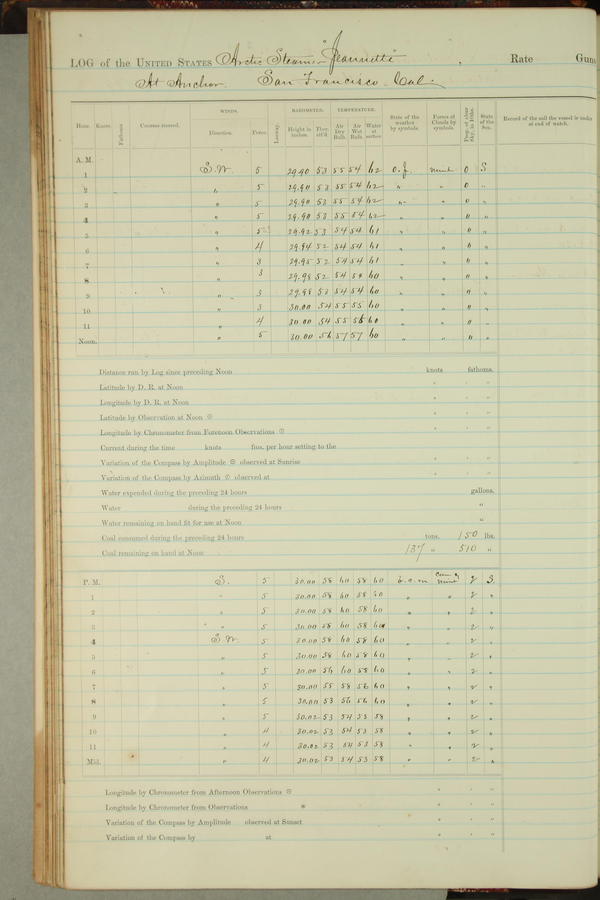 LOG of the UNITED STATES Arctic Steamer Jeannette , Rate Guns
At Anchor San Francisco Cal.
WINDS. BAROMETER. TEMPERATURE.
Hour. Knots. Fathoms Courses steered. Direction. Force. Leeway. Height in inches. Ther. att'd Air Dry Bulb. Air Wet Bulb. Water at surface. State of the weather by symbols. Forms of Clouds by symbols. Prop. of clear Sky, in 10ths. State of the Sea. Record of the sail the vessel is under at end of watch.
A. M.
1 S.W. 5 29.90 53 55 54 62 0 S
2 " 5 29.90 53 55 54 62 " " 0 "
3 " 5 29.90 53 55 54 62 " " 0 "
4 " 5 29.90 53 55 54 62 " " 0 "
5 " 5 29.92 53 54 54 61 " " 0 "
6 " 4 29.94 52 54 54 61 " " 0 "
7 " 3 29.95 52 54 54 61 " " 0 "
8 " 3 29.98 52 54 54 60 " " 0 "
9 " 3 29.98 53 54 54 60 " " 0 "
10 " 3 30.00 54 55 55 60 " " 0 "
11 " 4 30.00 54 55 55 60 " " 0 "
Noon. " 5 30.00 56 57 57 60 " " 0 "
Distance run by Log since preceding Noon knots fathoms.
Latitude by D. R. at Noon ° ' "
Longitude by D. R. at Noon ° ' "
Latitude by Observation at Noon ° ' "
Longitude by Chronometer from Forenoon Observations ° ' "
Current during the time knots fms. per hour setting to the
Variation of the Compass by Amplitude observed at Sunrise ° ' "
Variation of the Compass by Azimuth observed at ° ' "
Water expended during the preceding 24 hours gallons.
Water during the preceding 24 hours "
Water remaining on hand fit for use at Noon "
Coal consumed during the preceding 24 hours tons. 150 lbs.
Coal remaining on hand at Noon 137 " 510 "
P. M. S. 5 30.00 58 60 58 60 b.c.m 2 S.
1 " 5 30.00 58 60 58 60 " " 2 "
2 " 5 30.00 58 60 58 60 " " 2 "
3 " 5 30.00 58 60 58 60 " " 2 "
4 S.W. 5 30.00 58 60 58 60 " " 2 "
5 " 5 30.00 58 60 58 60 " " 2 "
6 " 5 30.00 56 60 58 60 " " 2 "
7 " 5 30.00 55 58 56 60 " " 2 "
8 " 5 30.00 53 56 56 60 " " 2 "
9 " 5 30.02 53 54 53 58 " " 2 "
10 " 4 30.02 53 54 53 58 " " 2 "
11 " 4 30.02 53 54 53 58 " " 2 "
Mid. " 4 30.02 53 54 53 58 " " 2 "
Longitude by Chronometer from Afternoon Observations ° ' "
Longitude by Chronometer from Observations ° ' "
Variation of the Compass by Amplitude observed at Sunset ° ' "
Variation of the Compass by at ° ' "